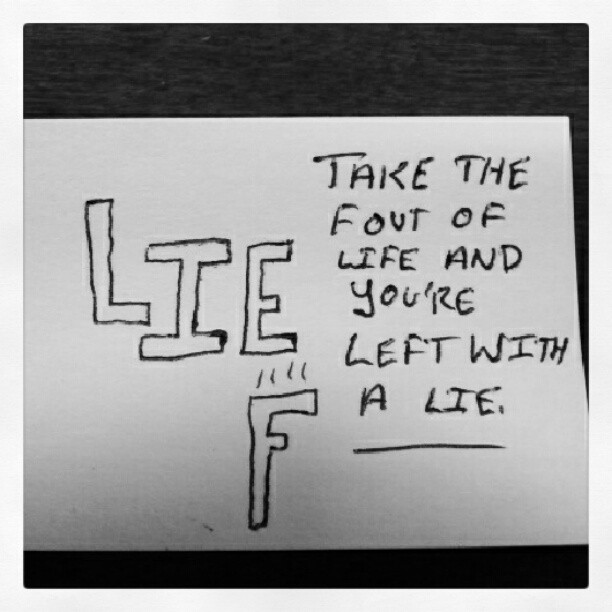 LIE
F
TAKE THE
F OUT OF
LIFE AND
YOU'RE
LEFT WITH
A LIE.